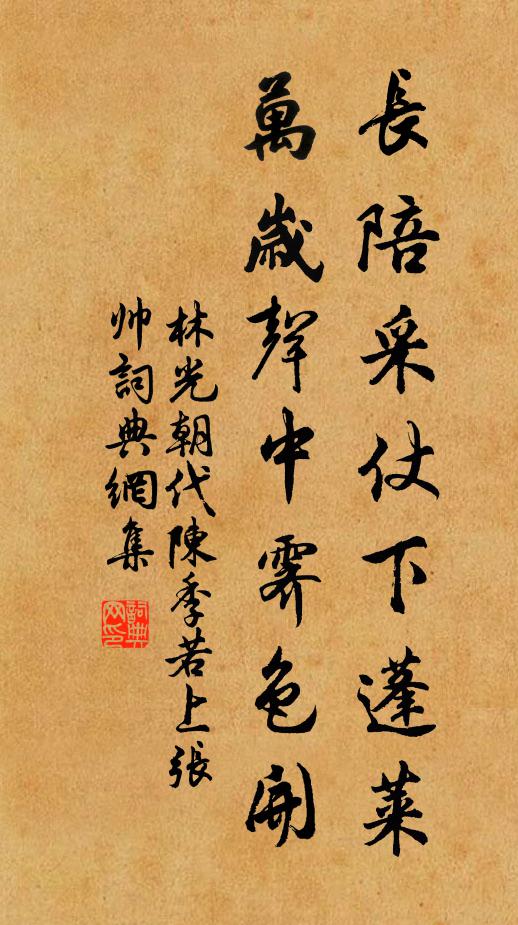 長陪采仗下蓬萊
萬歲聲中霽色開
林光朝代陳季若上張
帅詞典網集
詞典
网印